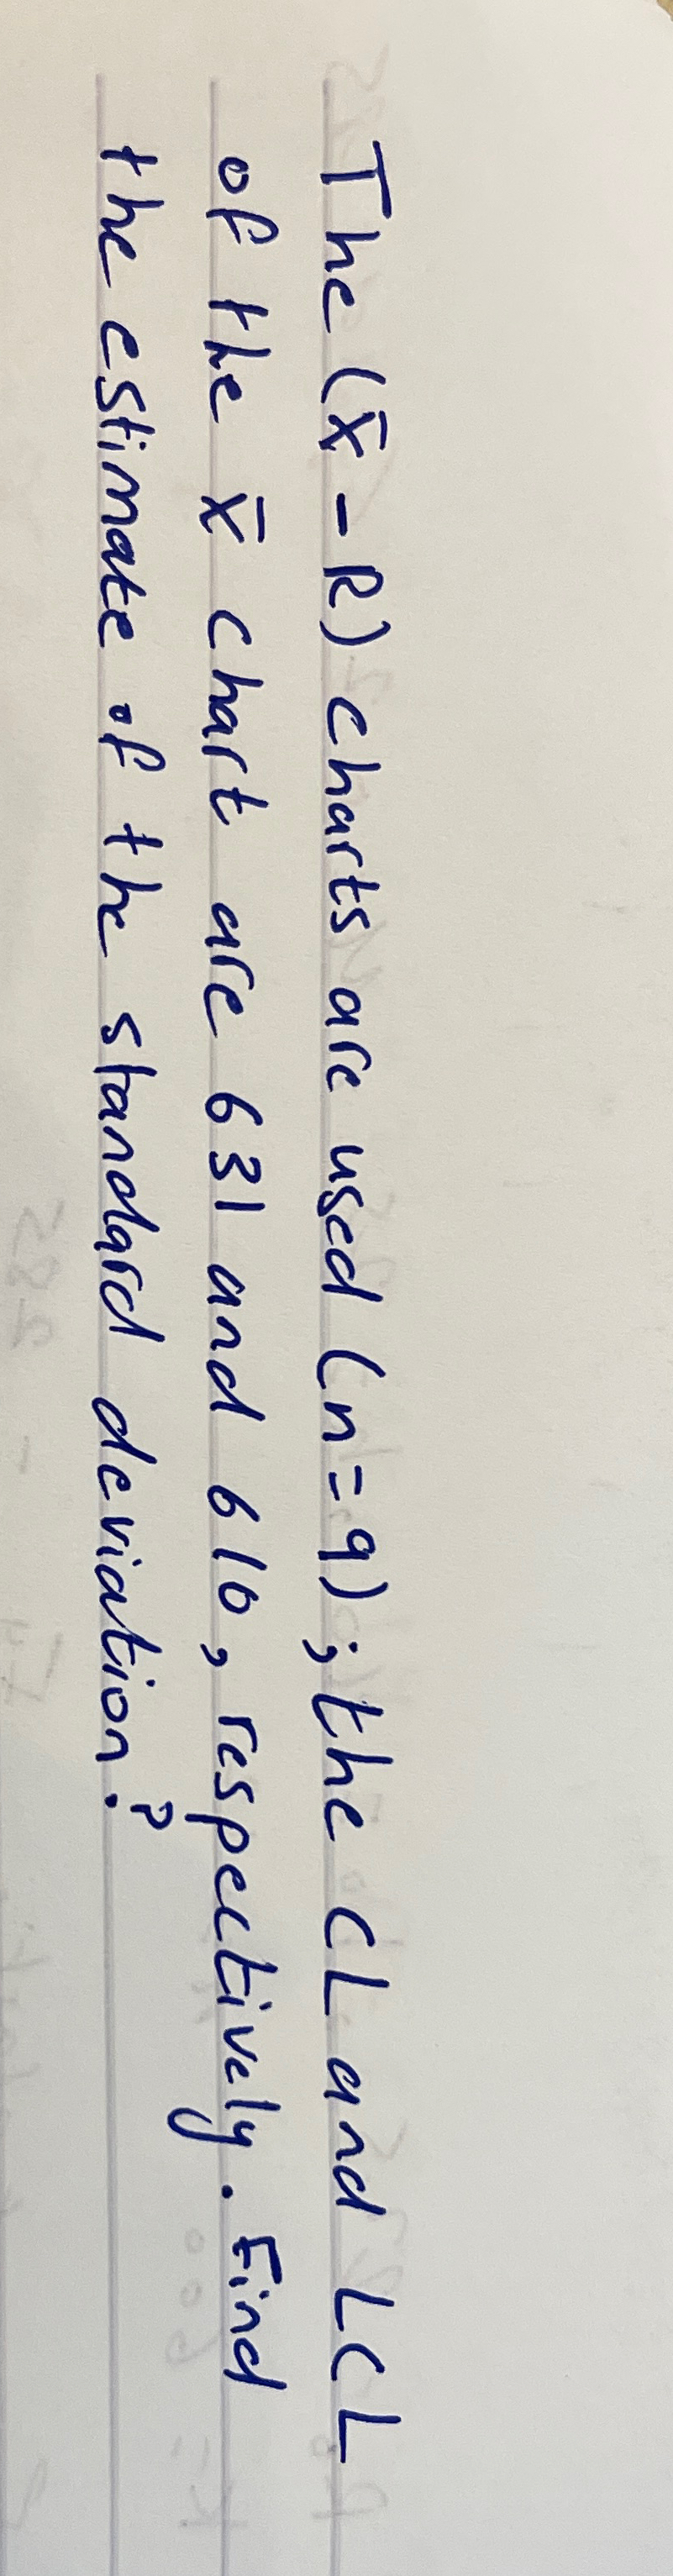 The (x̄ - R) charts are used (n=9); the CL and LCL
of the x̄ chart are 631 and 610, respectively. Find
the estimate of the standard deviation?